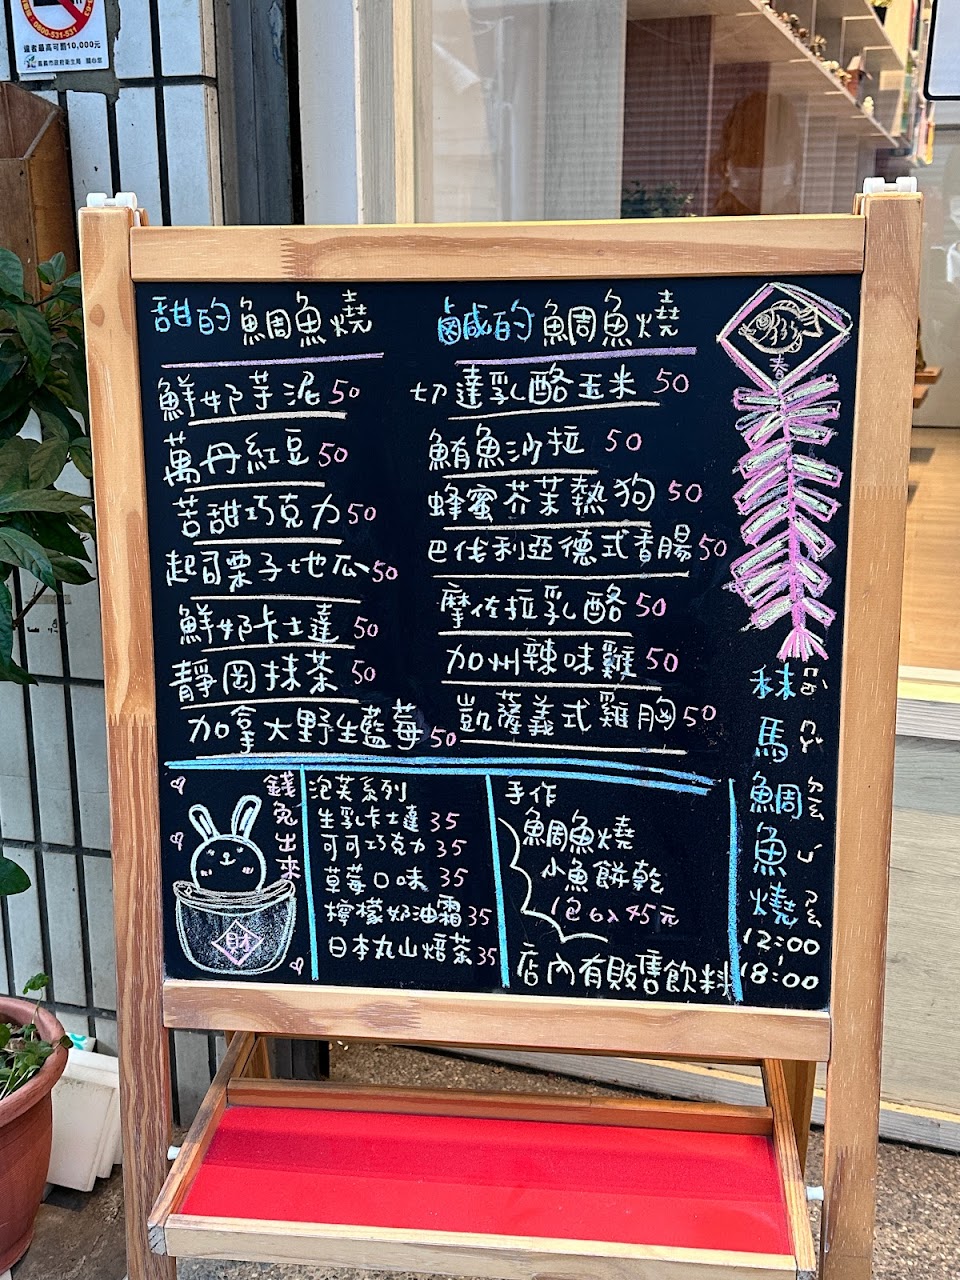 0800-531-531
違者最高可罰10,000元
嘉義市政府衛生局 關心您
甜的鯛魚燒
鮮奶芋泥50
萬丹紅豆50
苦甜巧克力50
起司栗子地瓜50
鮮奶卡士達50
靜岡抹茶50
加拿大野生藍莓50
鹹的鯛魚燒
切達乳酪玉米50
鮪魚沙拉50
蜂蜜芥茉熱狗50
巴伐利亞德式香腸50
摩佐拉乳酪50
加州辣味雞50
凱薩義式雞胸50
春
秣ㄇㄛˋ
馬ㄇㄚˇ
鯛ㄉㄧㄠ
魚ㄩˊ
燒ㄕㄠ
12:00
18:00
錢兔出來
財
泡芙系列
生乳卡士達35
可可巧克力35
草莓口味35
檸檬奶油霜35
日本丸山焙茶35
手作
鯛魚燒
小魚餅乾
1包6入45元
店內有販售飲料